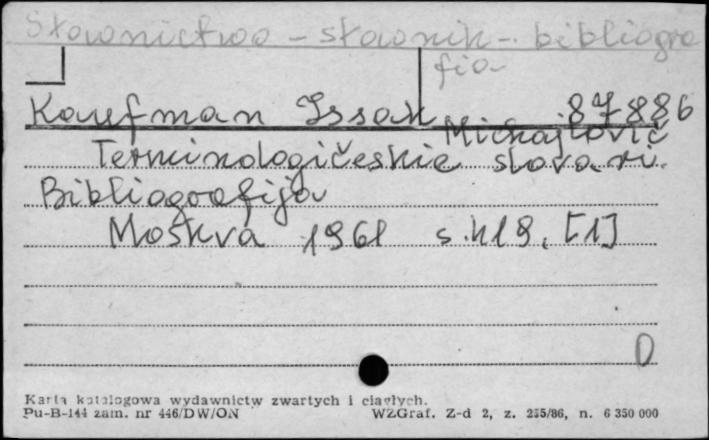 Słownictwo - słownik - bibliogra
fia
Kaufman Issak 87886
Michajlovič
Terminologičeskie slovari.
Bibliografija
Moskva 1961 s. 419, [1]
D
Karta katalogowa wydawnictw zwartych i ciągłych.
Pu-B-144 zam. nr 446/DW/ON WZGraf. Z-d 2, z. 255/86, n. 6 350 000